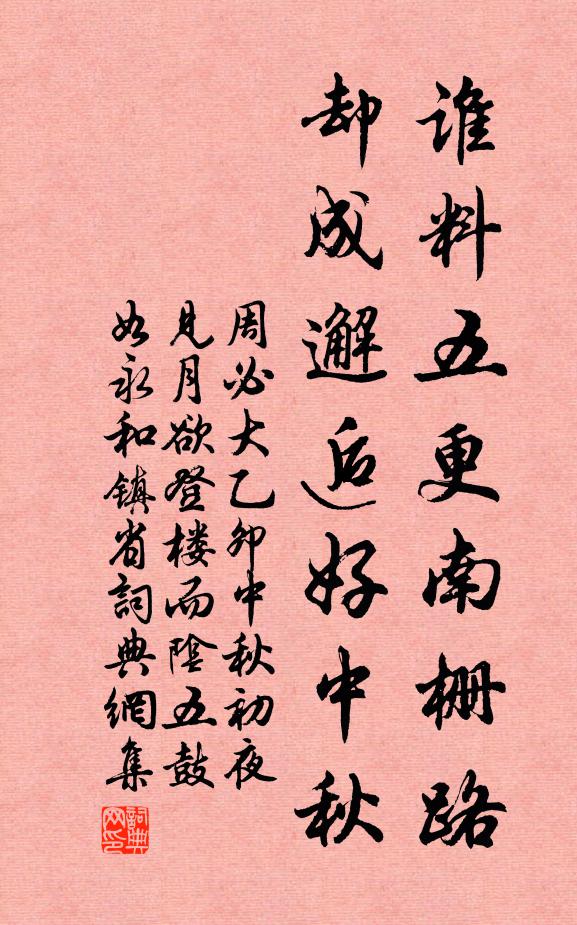 谁料五更南栅路
却成邂逅好中秋
周必大乙卯中秋初夜
见月欲登楼而陰五鼓
如永和镇省詞典網集
詞典
网印